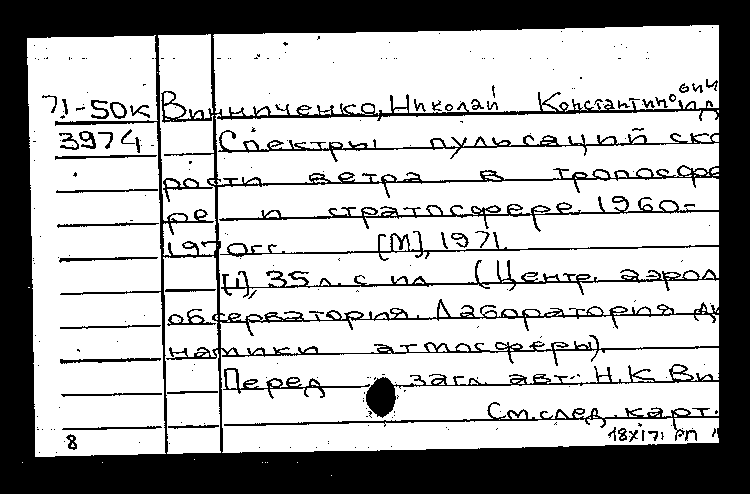 71-50к Винниченко, Николай Константинович
3974 Спектры пульсаций ско
рости ветра в тропосфе
ре и стратосфере. 1960-
1970гг. [М], 1971.
[1], 35 л. с ил (Центр. аэрол
обсерватория. Лаборатория ди
намики атмосферы).
Перед загл. авт.: Н.К Ви
См. след. карт.
8 18X171 РП